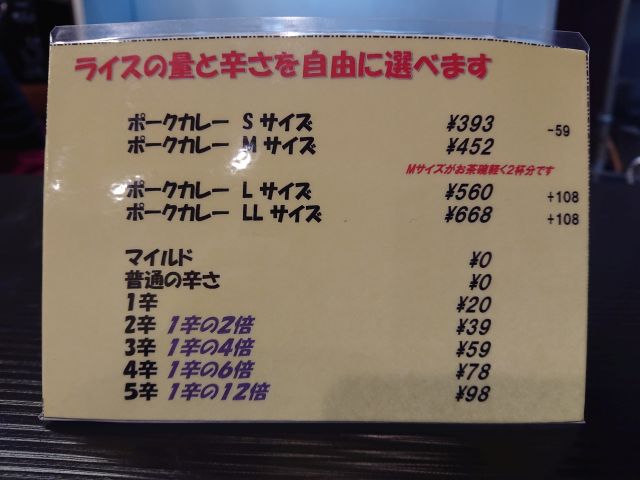 ライスの量と辛さを自由に選べます
ポークカレー Sサイズ ¥393 -59
ポークカレー Mサイズ ¥452
Mサイズがお茶碗軽く2杯分です
ポークカレー Lサイズ ¥560 +108
ポークカレー LLサイズ ¥668 +108
マイルド ¥0
普通の辛さ ¥0
1辛 ¥20
2辛 1辛の2倍 ¥39
3辛 1辛の4倍 ¥59
4辛 1辛の6倍 ¥78
5辛 1辛の12倍 ¥98